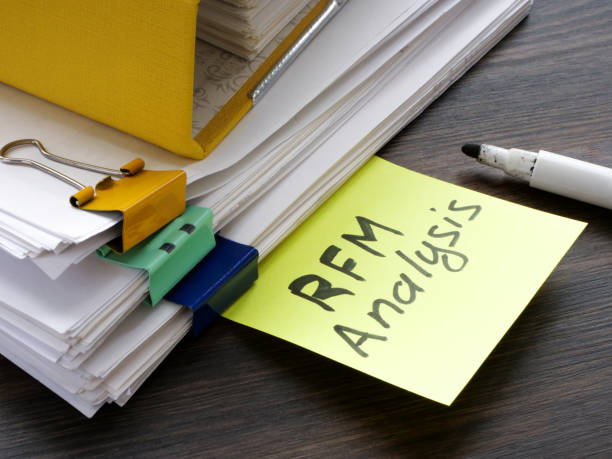 RFM
Analysis